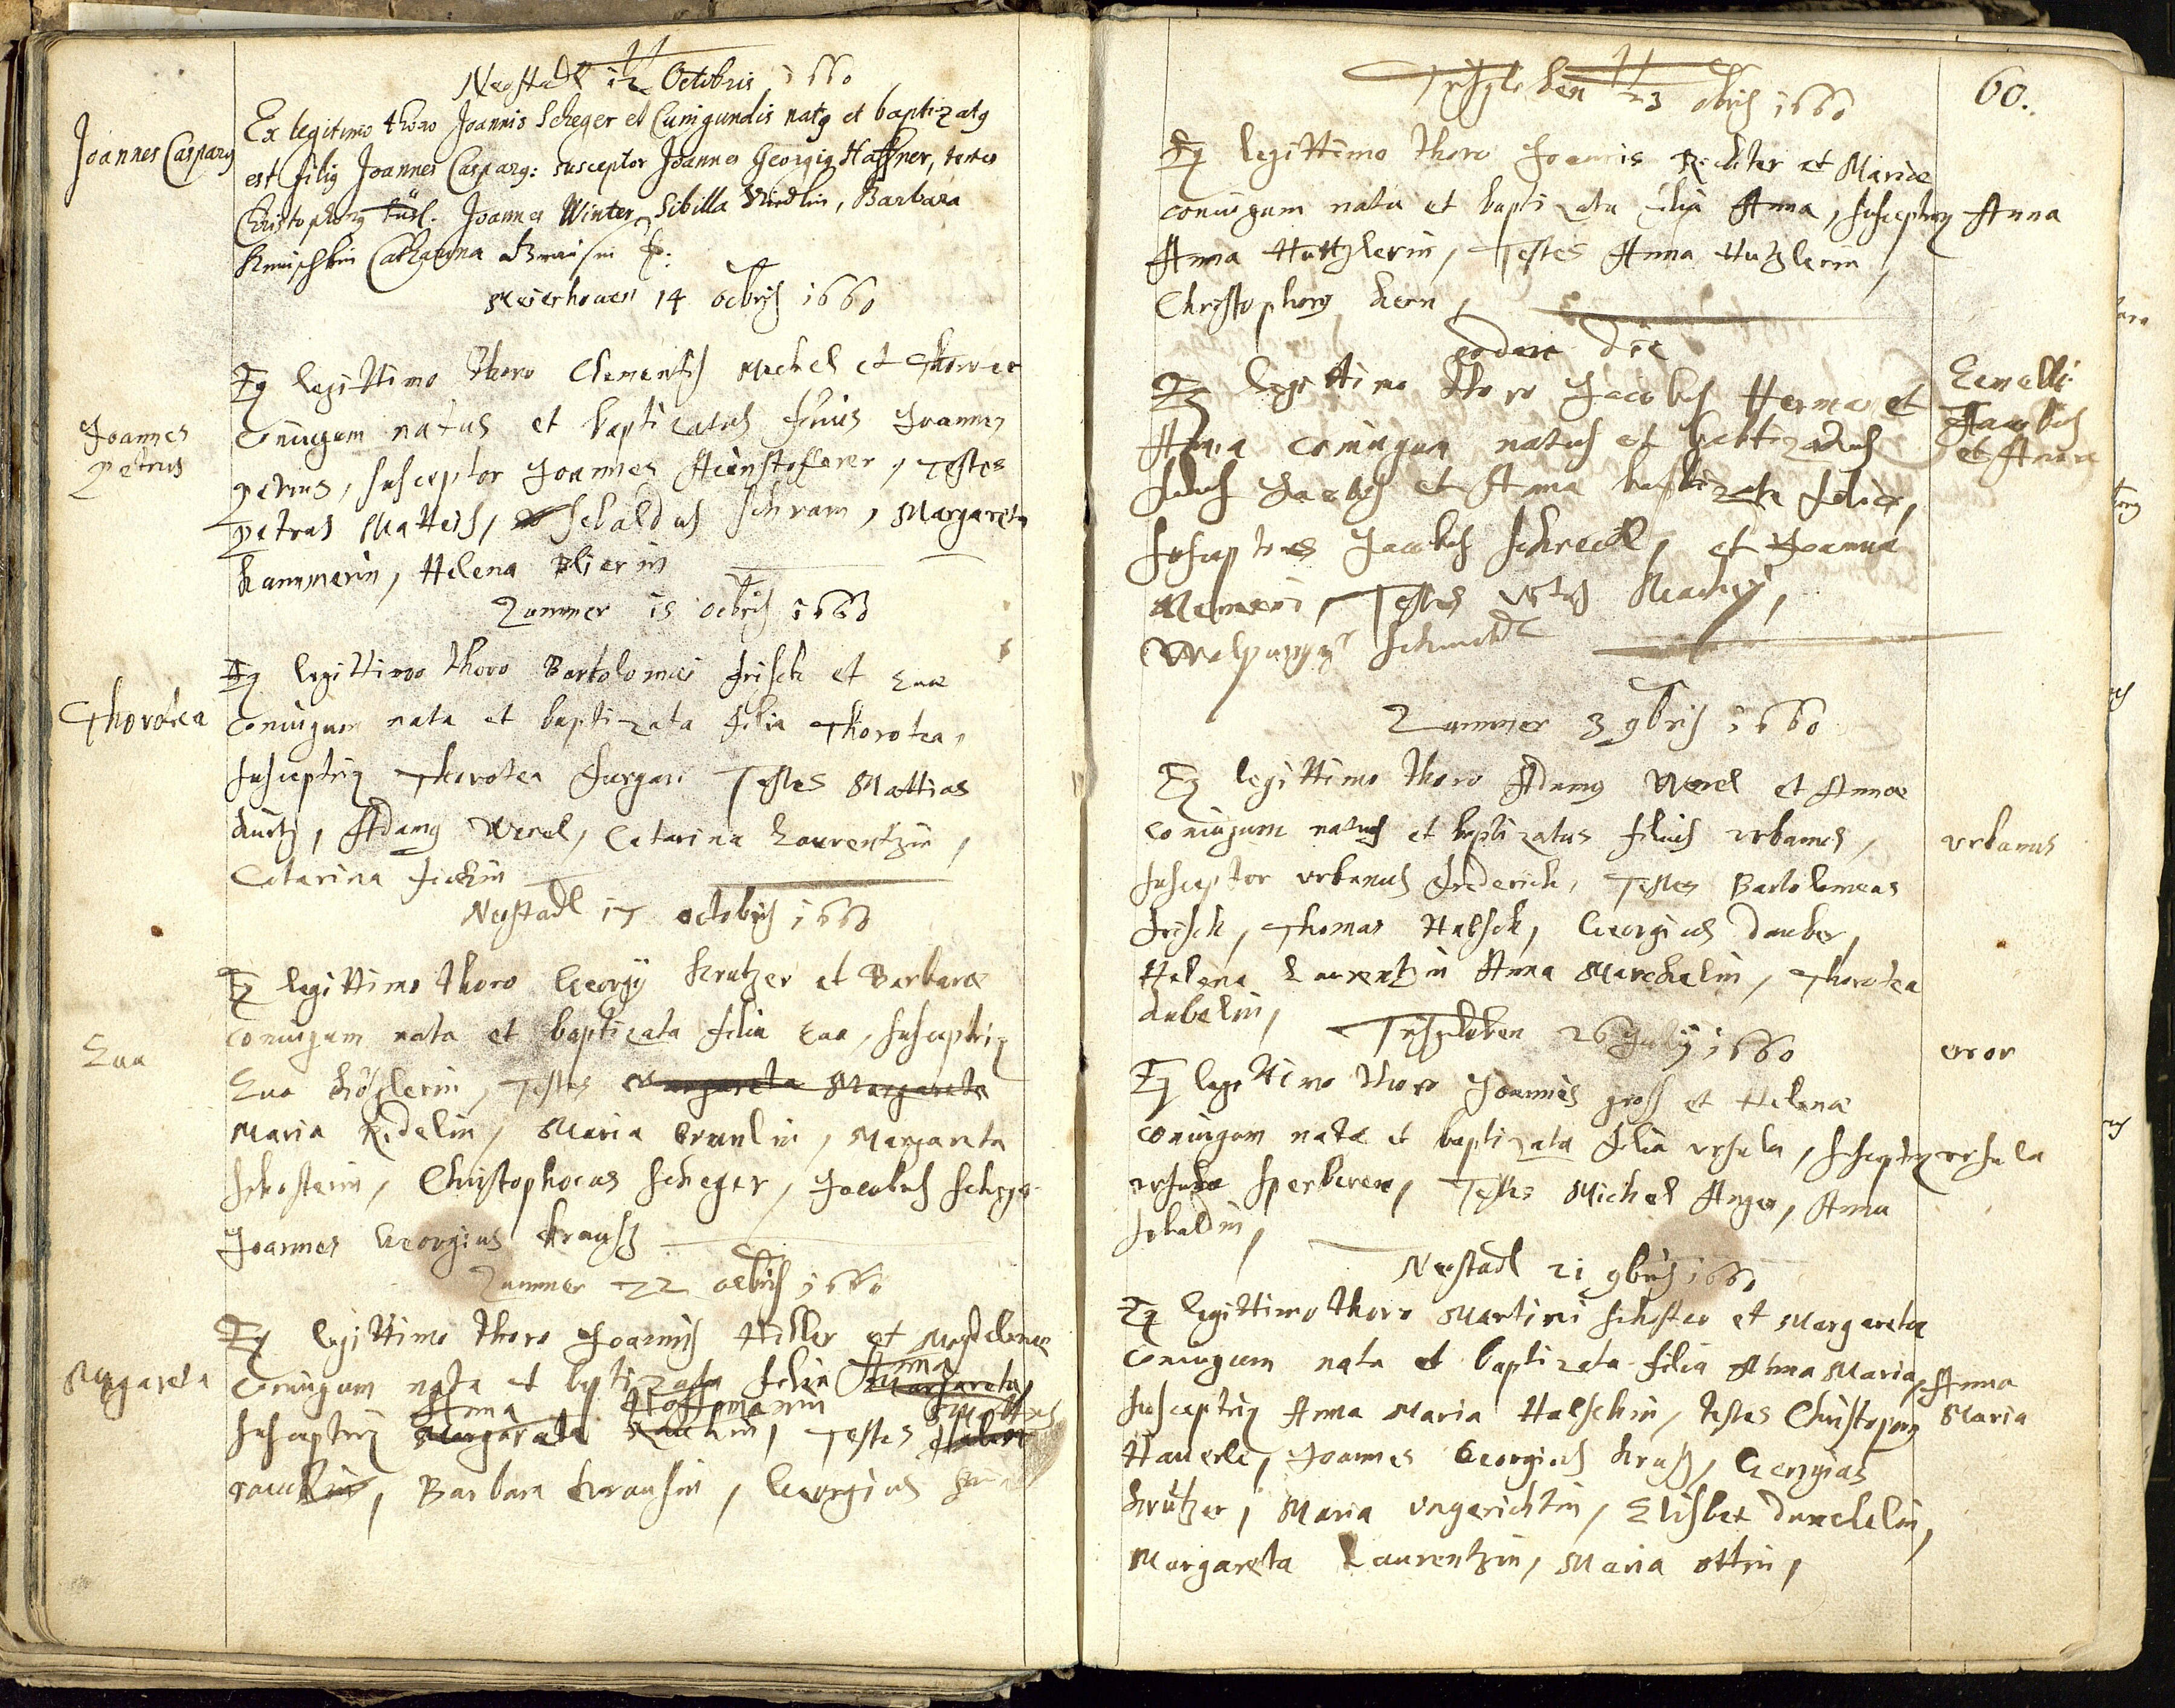 Neostadl 12 Octobris 1660
Joannes Casparg
Ex legitimo thoro Joannis Scheger et Cunigundis natg et baptizatg
est filig Joannes Casparg: susceptor Joannes Georgig Haffner, testes
Christophorg Joannes Winter, Sibilla Riedlin, Barbara
Catharina
14 octobris 1660
Joannes
petrus
Ex legittimo thoro Clementis Michel et
Coniugum natus et baptizatus filius Joannes
petrus, susceptor Joannes testes
petrus Matteis, sebaldus schram, Margareta
Kammerin, Helena
Zummer 15 octobris 1660
Thorotea
Ex legittimo thoro Bartolomei frisch et Euae
Coniugum nata et baptizata filia Thorotea,
susceptrix Thorotea Testes Mattias
kurtz, Adamg Werel, Catarina Laurentzin,
Catarina
Neostadl 17 octobris 1660
Eua
Ex legittimo thoro Georgij Krutzer et Barbarae
coniugum nata et baptizata filia Eua, susceptrix
Eua testes Margareta Margareta
Maria Ridelin, Maria Margareta
schosterin, Christophorus scheger, Jacobus scheger
Joannes Georgius krausz
Zummer 22 octobris 1660
Margareta
Ex legittimo thoro Joannis Hiller et Magdelenae
coniugum nata et baptizata filia Anna Margareta,
Anna Hoffmanin
susceptrix Margareta Testes
Barbara krausin, Georgius
60.
23 obris 1660
Ex legittimo thoro Joannis Richter et Mariae
coniugum nata et baptizata filia Anna, susceptrix
Anna
Anna Hutzlerin, Testes Anna Hutzlerin,
Christophorg kern,
eodem die
Gemelli
Jacobus
et Anna
Ex legittimo thoro Jacobus Herman et
Anna coniugum natus et baptizatus
filius Jacobus et Anna baptizata filia,
susceptores Jacobus schreckl, et Joanna
Testes
Walpurga
Zummer 3 9bris 1660
Ex legittimo thoro Adamg Werel et Annae
coniugum natus et baptizatus filius vrbanus,
vrbanus
susceptor vrbanus friderich, Testes Bartolomeus
frisch, Thomas Halsch, Georgius dauber,
Helena Laurentzin Anna Marckelin, Thorotea
dubelin,
26 July 1660
error
Ex legittimo thoro Joannis gross et Helenae
coniugum nata et baptizata filia vrsula, susceptrix
vrsula
vrsula sperberen, Testes Michel Anger, Anna
sebaldin,
Neostadl 21 9bris 1660
Ex legittimo thoro Martini schoster et Margaretae
coniugum nata et baptizata filia Anna Maria,
Anna
Maria
susceptrix Anna Maria Halschin, testes Christoporg
Hauerle, Joannes Georgius krusz, Georgius
krutzer, Maria vngerichtin, Elisbet dunckelin,
Margareta Laurentzin, Maria ottin,